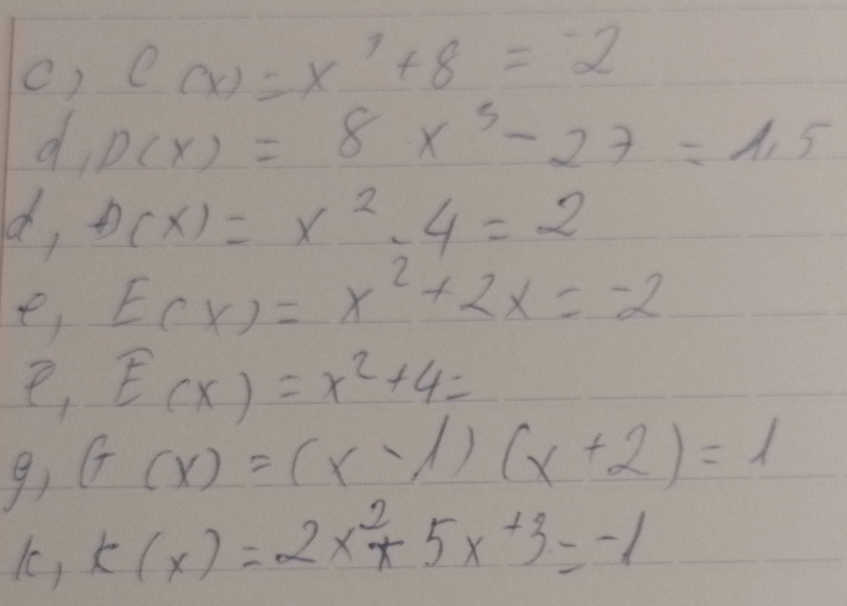 c, C(x) = x³ + 8 = -2
d, D(x) = 8x³ - 27 = 1,5
đ, Đ(x) = x² - 4 = 2
e, E(x) = x² + 2x = -2
ê, Ê(x) = x² + 4 =
g, G(x) = (x - 1)(x + 2) = 1
k, K(x) = 2x² + 5x + 3 = -1